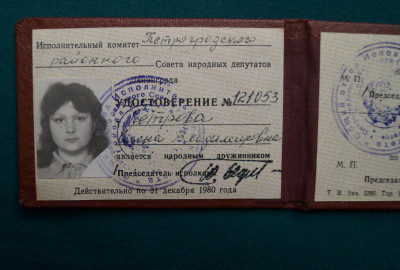 Исполнительный комитет Петроградского
районного Совета народных депутатов
Ленинграда
УДОСТОВЕРЕНИЕ № 121053
Петрова
Владимировна
является народным дружинником
Председатель исполкома
Действительно по 31 декабря 1980 года
М. П.
Председа
М. П.
Председа